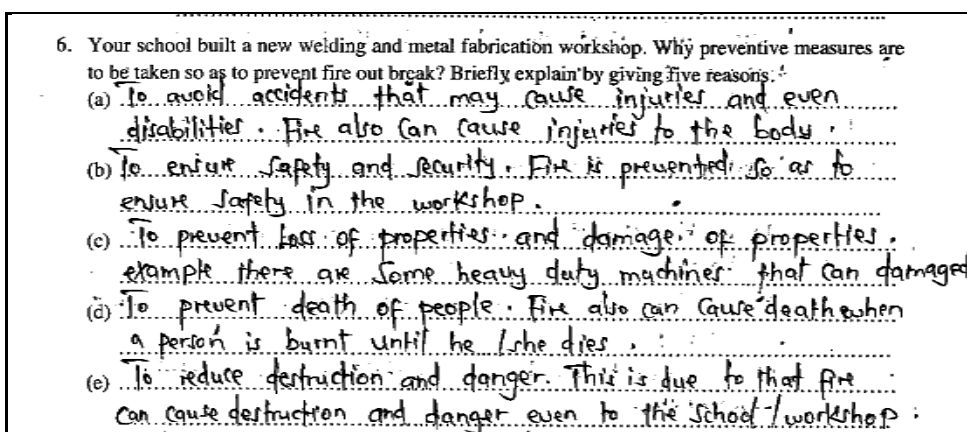 6. Your school built a new welding and metal fabrication workshop. Why preventive measures are
to be taken so as to prevent fire out break? Briefly explain by giving five reasons.
(a) To avoid accidents that may cause injuries and even
disabilities. Fire also can cause injuries to the body.
(b) To ensure safety and security. Fire is prevented so as to
ensure safety in the workshop.
(c) To prevent loss of properties and damage of properties.
example there are some heavy duty machines that can damaged
(d) To prevent death of people. Fire also can cause death when
a person is burnt until he /she dies.
(e) To reduce destruction and danger. This is due to that fire
can cause destruction and danger even to the school / workshop.